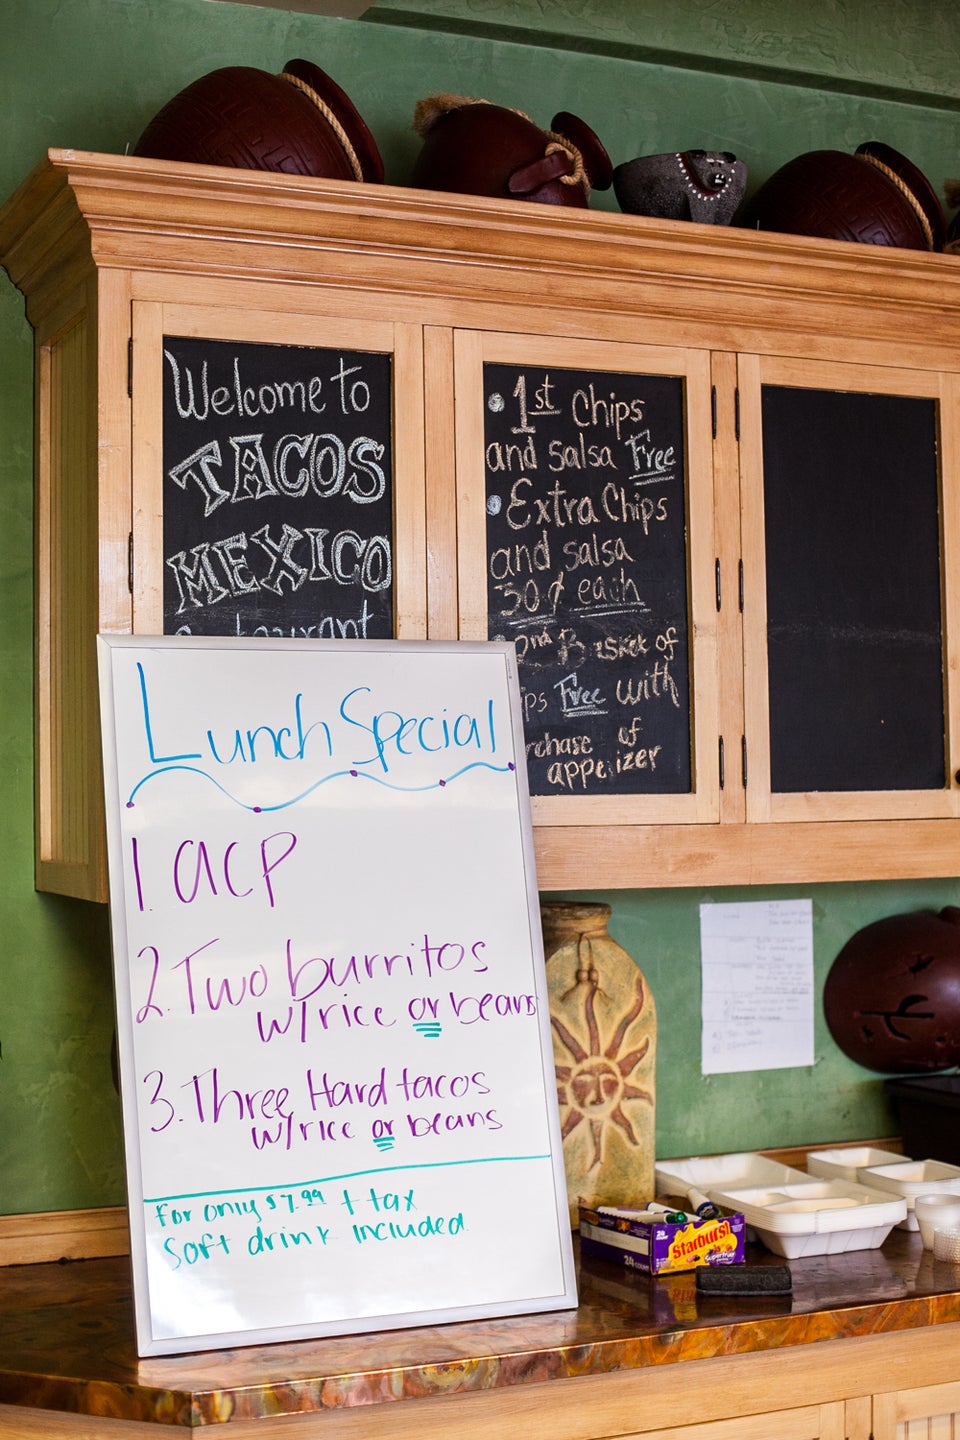 Welcome to
TACOS
MEXICO
1st Chips
and salsa Free
Extra Chips
and salsa
50¢ each
2nd Basket of
Free with
of
appetizer
Lunch Special
1. ACP
2. Two burritos
w/rice or beans
3. Three Hard tacos
w/rice or beans
For only $7.99 + tax
Soft drink included
Starburst
24 COUNT